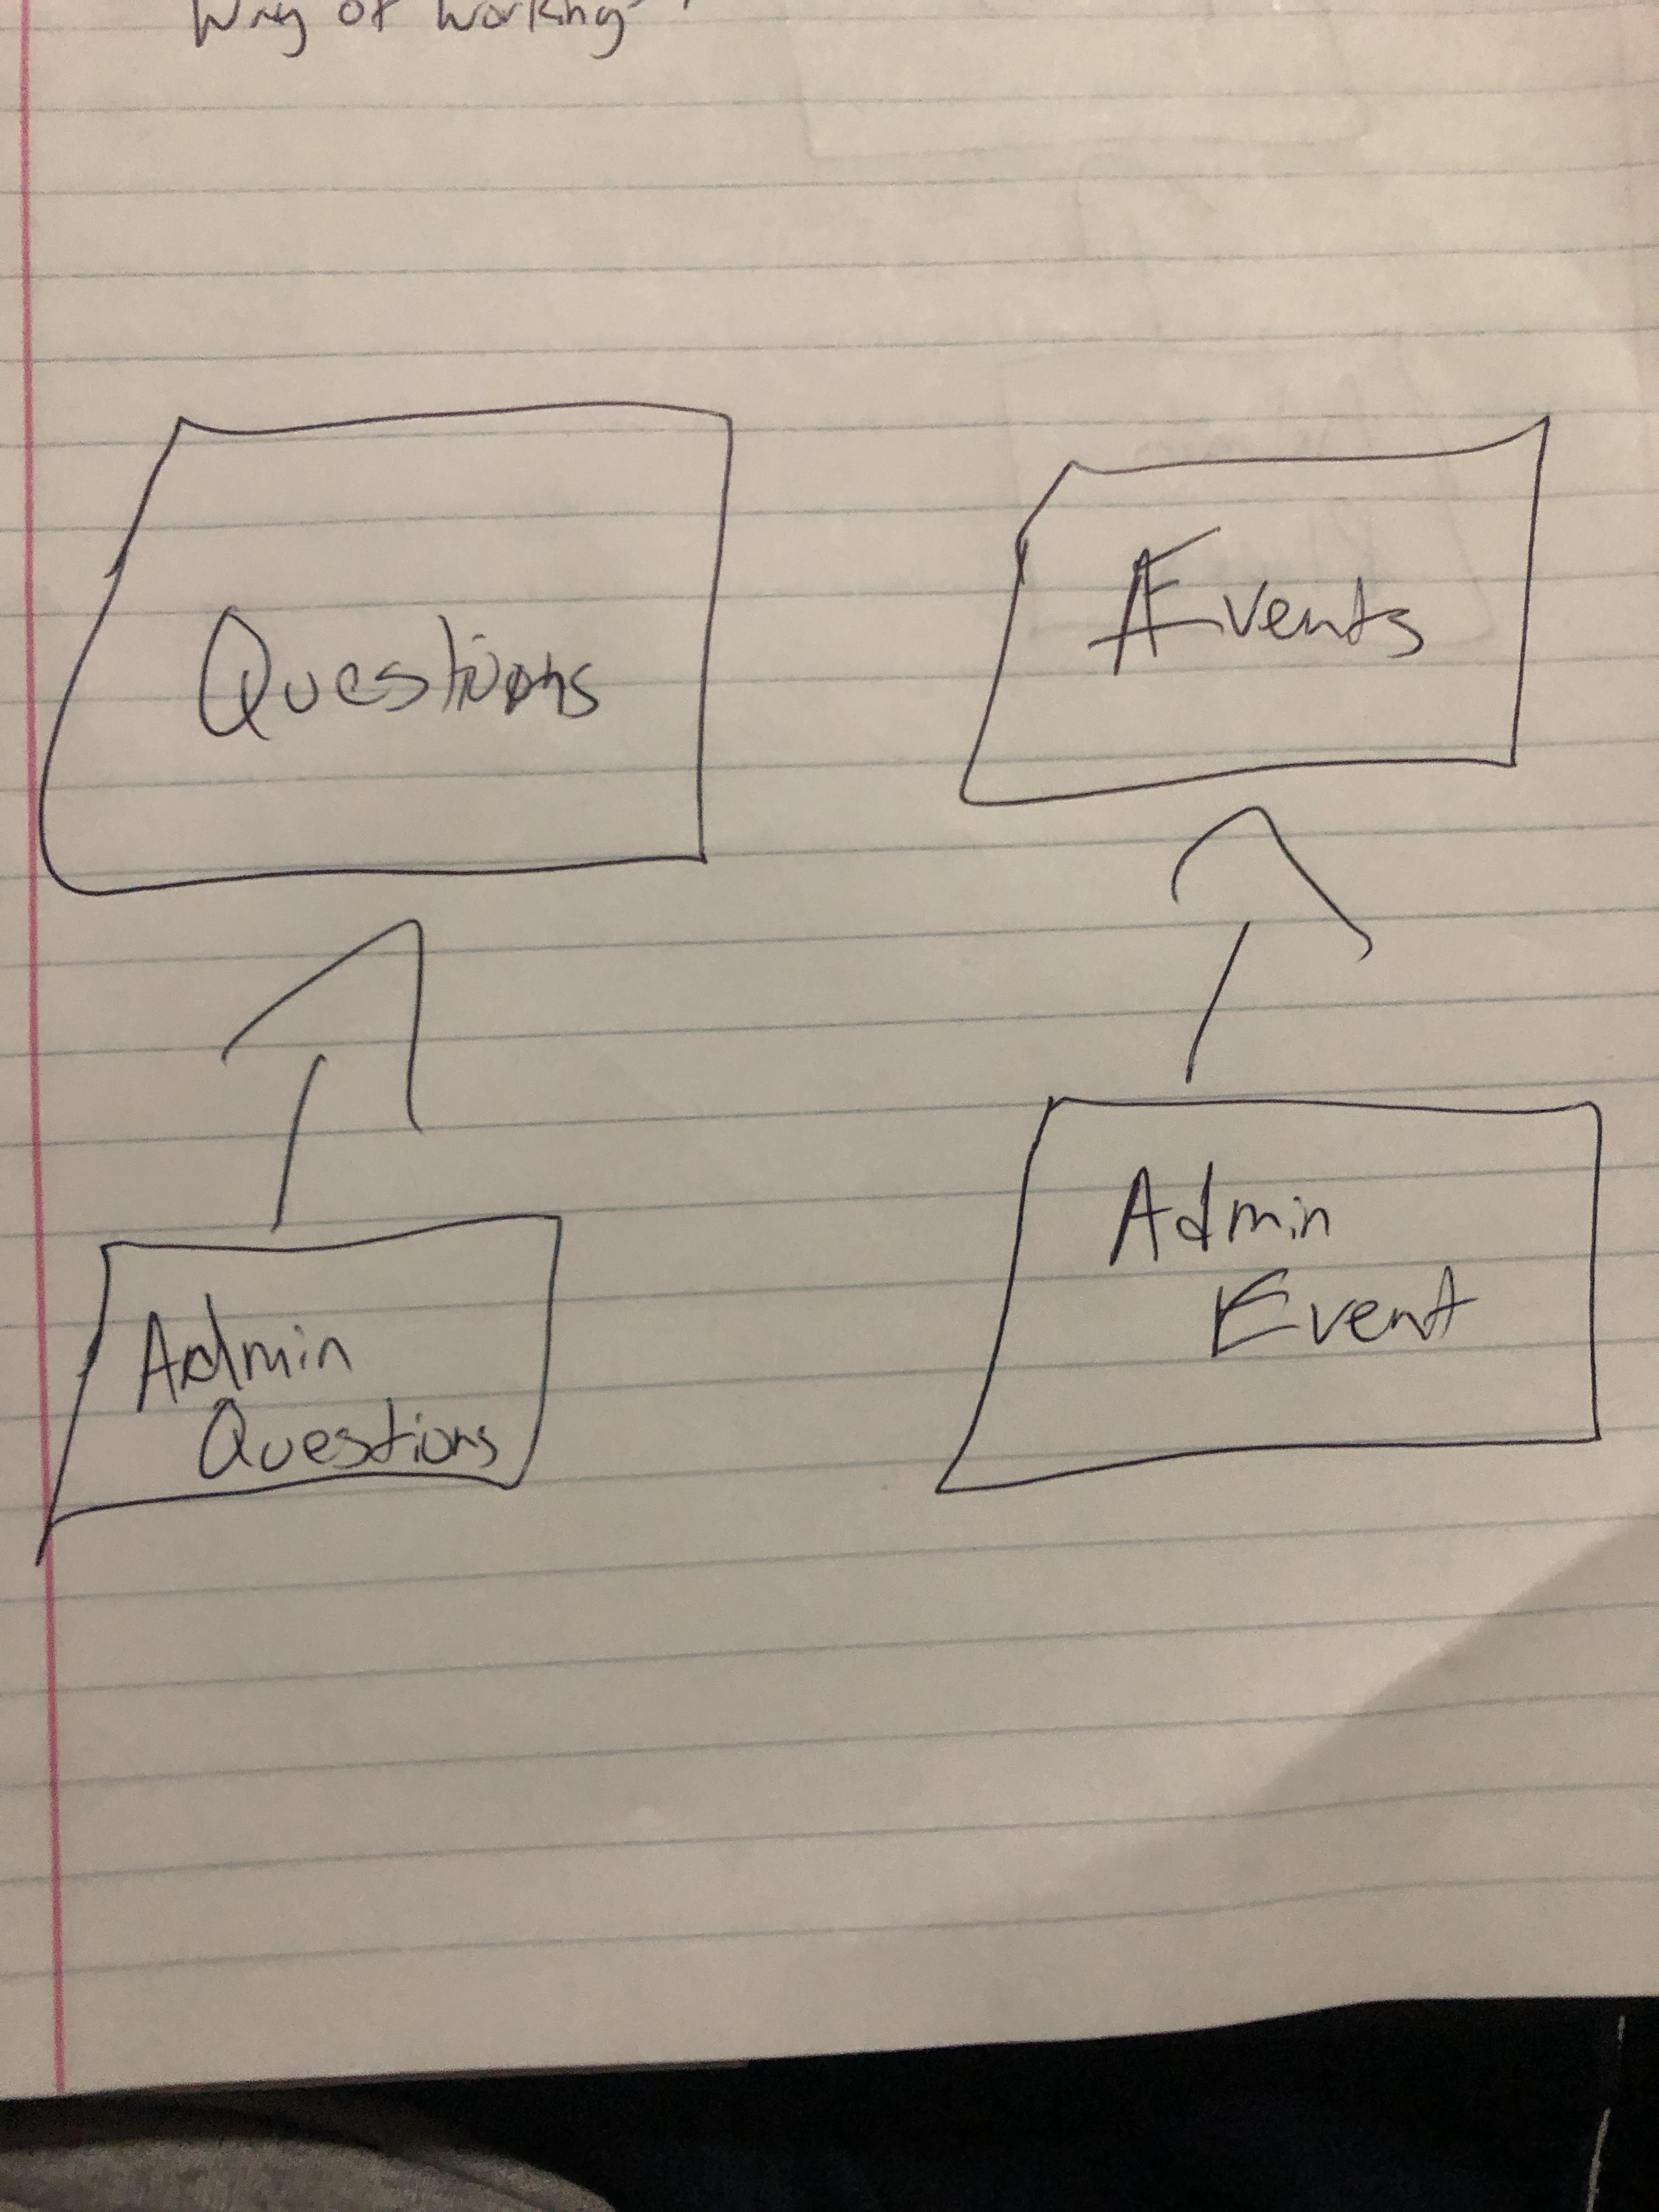 Way of Working
Questions
Events
Admin
Questions
Admin
Event